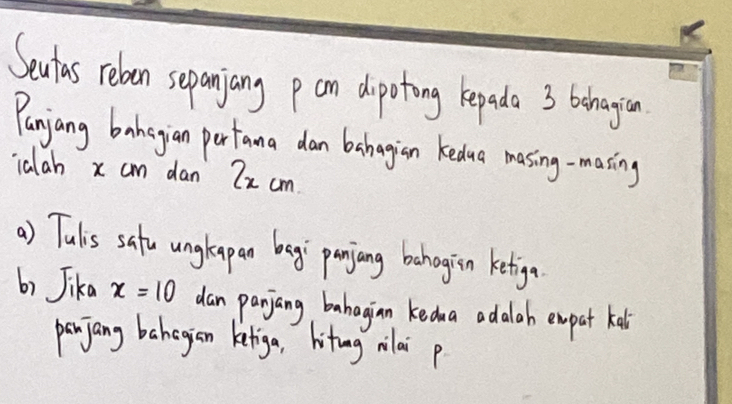 Seutas reben sepanjang p cm dipotong kepada 3 bahagian.
Panjang bahagian pertama dan bahagian kedua masing-masing
ialah x cm dan 2x cm.
a) Tulis satu ungkapan bagi panjang bahagian ketiga.
b) Jika x = 10 dan panjang bahagian kedua adalah empat kali
panjang bahagian ketiga, hitung nilai p